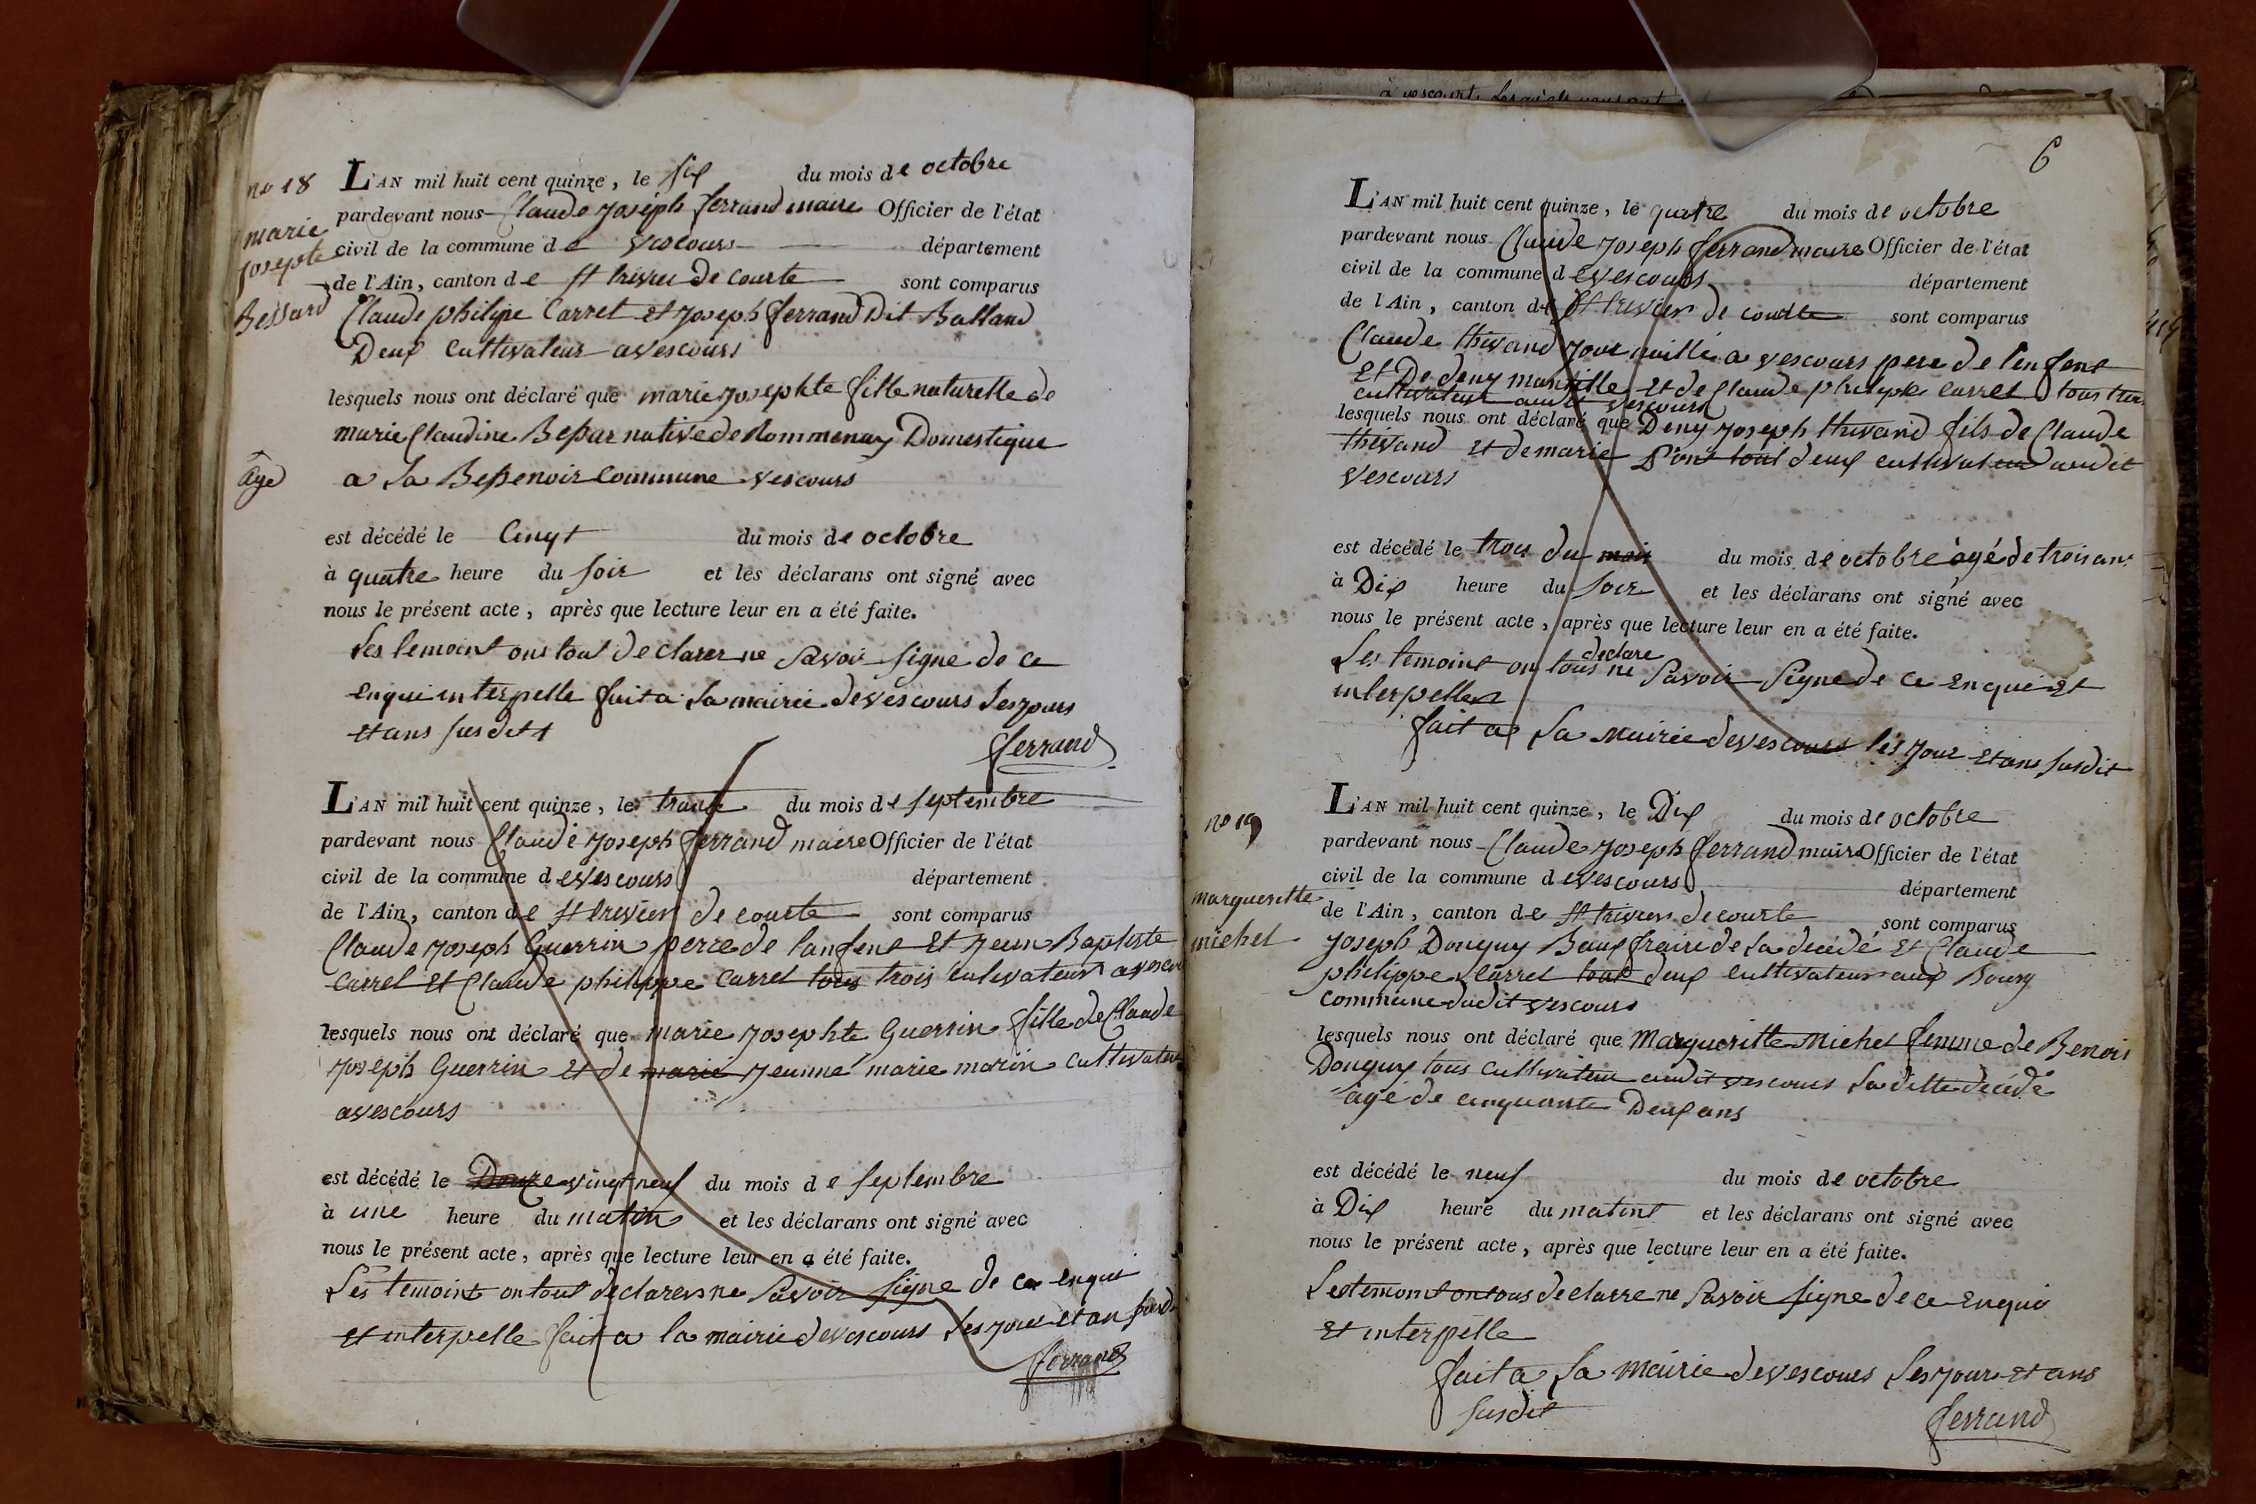 no 18
marie
josepte
Bessard
âgé
L'AN mil huit cent quinze, le six du mois de octobre
pardevant nous Claude joseph ferrand maire Officier de l'état
civil de la commune de vescours département
de l'Ain, canton de st trivier De courte sont comparus
Claude philipe Carret et joseph ferrand Dit Balland
Deux Cultivateur a vescours
lesquels nous ont déclaré que marie josephte fille naturelle de
marie Claudine Bessar native de Rommenay Domestique
a La Bessenoir Commune vescours
est décédé le Cinqt du mois de octobre
à quatre heure du soir et les déclarans ont signé avec
nous le présent acte, après que lecture leur en a été faite.
Les temoint ons tout Declarer ne Savoir signe de ce
enqui interpelle fait a La mairie de vescours Les jours
et ans susdett
ferrand
L'AN mil huit cent quinze, le trante du mois de septembre
pardevant nous Claude joseph ferrand maire Officier de l'état
civil de la commune de vescours département
de l'Ain, canton de st trivier de courte sont comparus
Claude joseph Guerrin perre de l'anfent Et jean Baptiste
Carrel Et Claude philippe Carret tous trois Cultivateur a vescou
lesquels nous ont déclaré que marie josephte Guerrin fille de Claude
joseph Guerrin et de marie jeunne marie morin Cultivateur
a vescours
est décédé le Douze vingt neuf du mois de septembre
à une heure du matin et les déclarans ont signé avec
nous le présent acte, après que lecture leur en a été faite.
Les temoint on tout declarer ne Savoir signe de ce enqui
et interpelle fait a la mairie de vescours Les jour et an susd
ferrand
à vescourt Lesquels nous ont
6
L'AN mil huit cent quinze, le quatre du mois de octobre
pardevant nous Claude joseph ferrand maire Officier de l'état
civil de la commune de vescours département
de l'Ain, canton de st trivier de courte sont comparus
Claude thivand journaillé a vescours pere de l'enfent
Et De deny et de Claude philype carret tous trois
cultivateur audit vescours
lesquels nous ont déclaré que Deny joseph thivand fils de Claude
thivand et de marie Pont tout deux cultivateur audit
vescours
est décédé le trois du mois du mois de octobre âgé de trois ans
à Dix heure du Soir et les déclarans ont signé avec
nous le présent acte, après que lecture leur en a été faite.
Les temoint on tous declare ne Savoir signe de ce enqui et
interpeller
fait a La Mairie de vescours les jour et ans susdit
no 19
margueritte
michel
L'AN mil huit cent quinze, le Dix du mois de octobre
pardevant nous Claude joseph ferrand maire Officier de l'état
civil de la commune de vescours département
de l'Ain, canton de st trivier de courte sont comparus
joseph Donguy Baux fraire de la décédé Et Claude
philippe Carret tout deux Cultivateur aux Bourg
commune dudit vescours
lesquels nous ont déclaré que Margueritte Michel femme de Benois
Donguy tous Cultivateur audit vescours La ditte décédé
âgé de cinquante Deux ans
est décédé le neuf du mois de octobre
à Dix heure du matint et les déclarans ont signé avec
nous le présent acte, après que lecture leur en a été faite.
Les temoint on tous declarre ne Savoir signe de ce Enqui
Et interpelle
fait a La Mairie de vescours Les jour et ans
susdit
ferrand